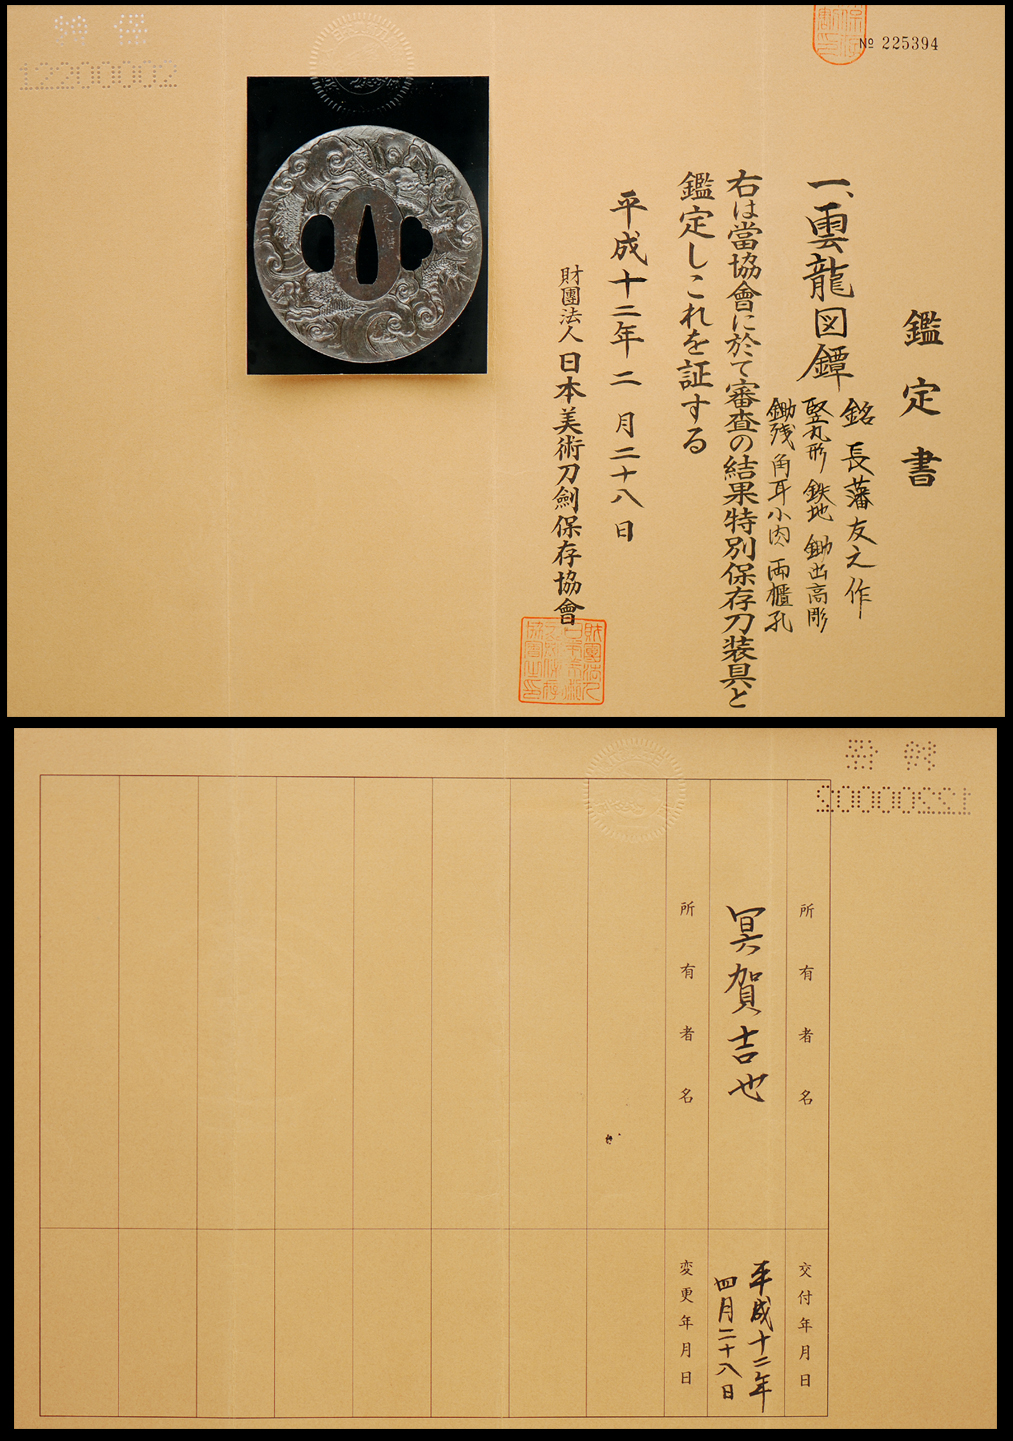 № 225394
鑑定書
一、雲龍図鐔
銘 長藩友之作
竪丸形 鉄地 鋤出高彫
鋤残 角耳小肉 両櫃孔
右は當協會に於て審査の結果特別保存刀装具と
鑑定しこれを証する
平成十二年二月二十八日
財團法人日本美術刀劍保存協會
12200002
12200002
所有者名
交付年月日
冥賀吉也
平成十二年
四月二十八日
所有者名
変更年月日